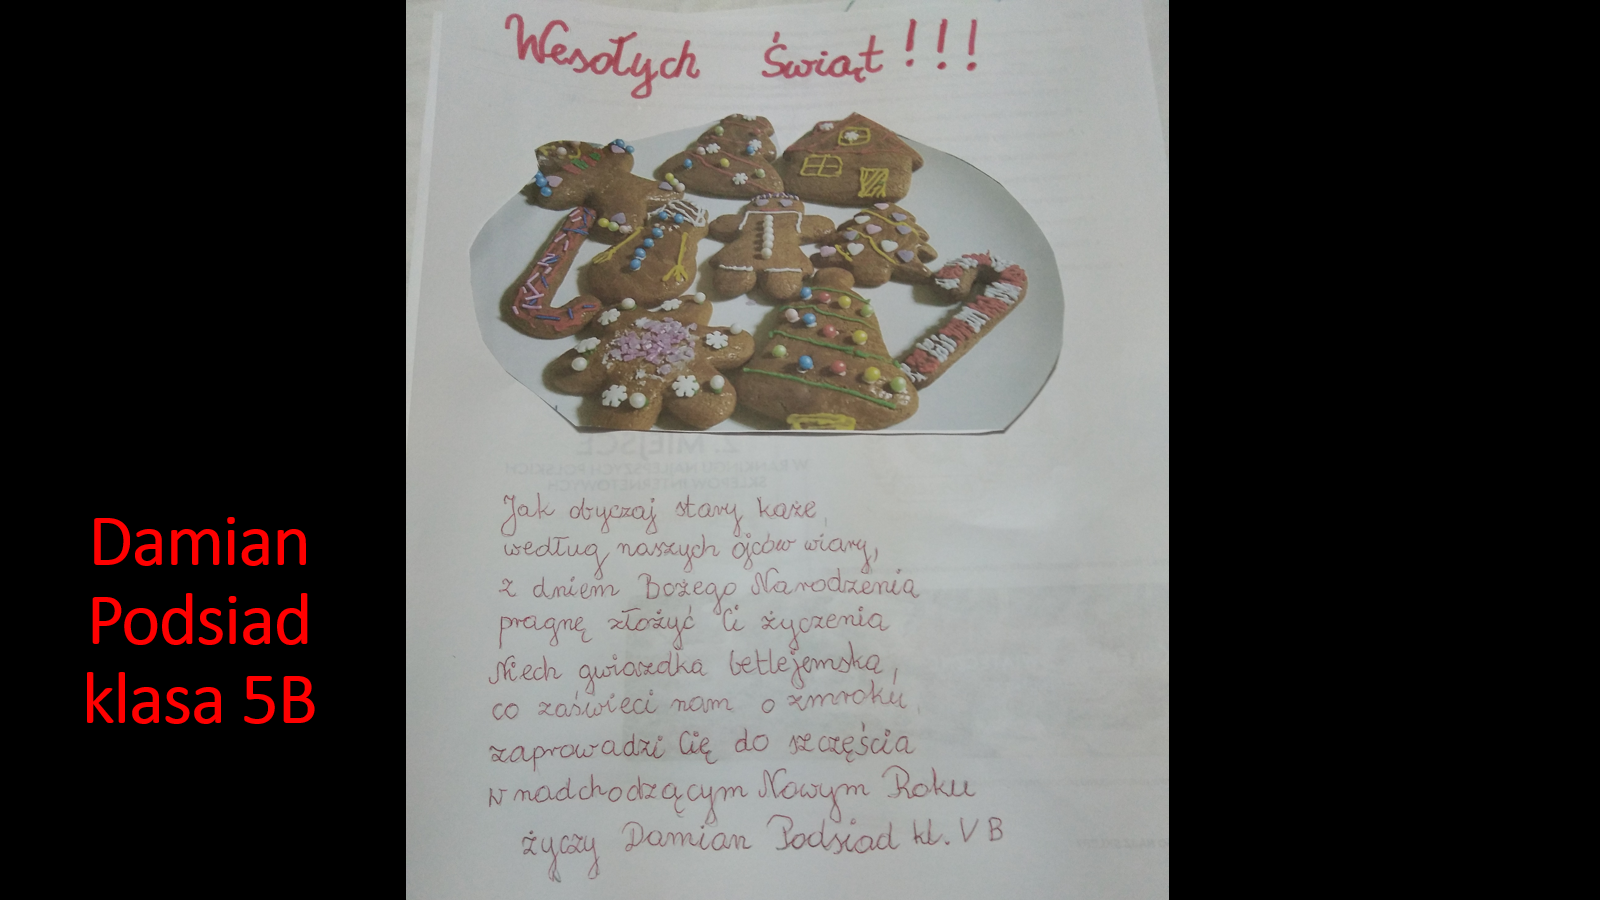 Wesołych Świąt!!!
Damian
Podsiad
klasa 5B
2. MIEJSCE
W RANKINGU NAJLEPSZYCH POLSKICH
SKLEPÓW INTERNETOWYCH
Jak obyczaj stary każe,
według naszych ojców wiary,
z dniem Bożego Narodzenia
pragnę złożyć Ci życzenia
Niech gwiazdka betlejemska,
co zaświeci nam o zmroku,
zaprowadzi Cię do szczęścia
w nadchodzącym Nowym Roku
życzy Damian Podsiad kl. V B